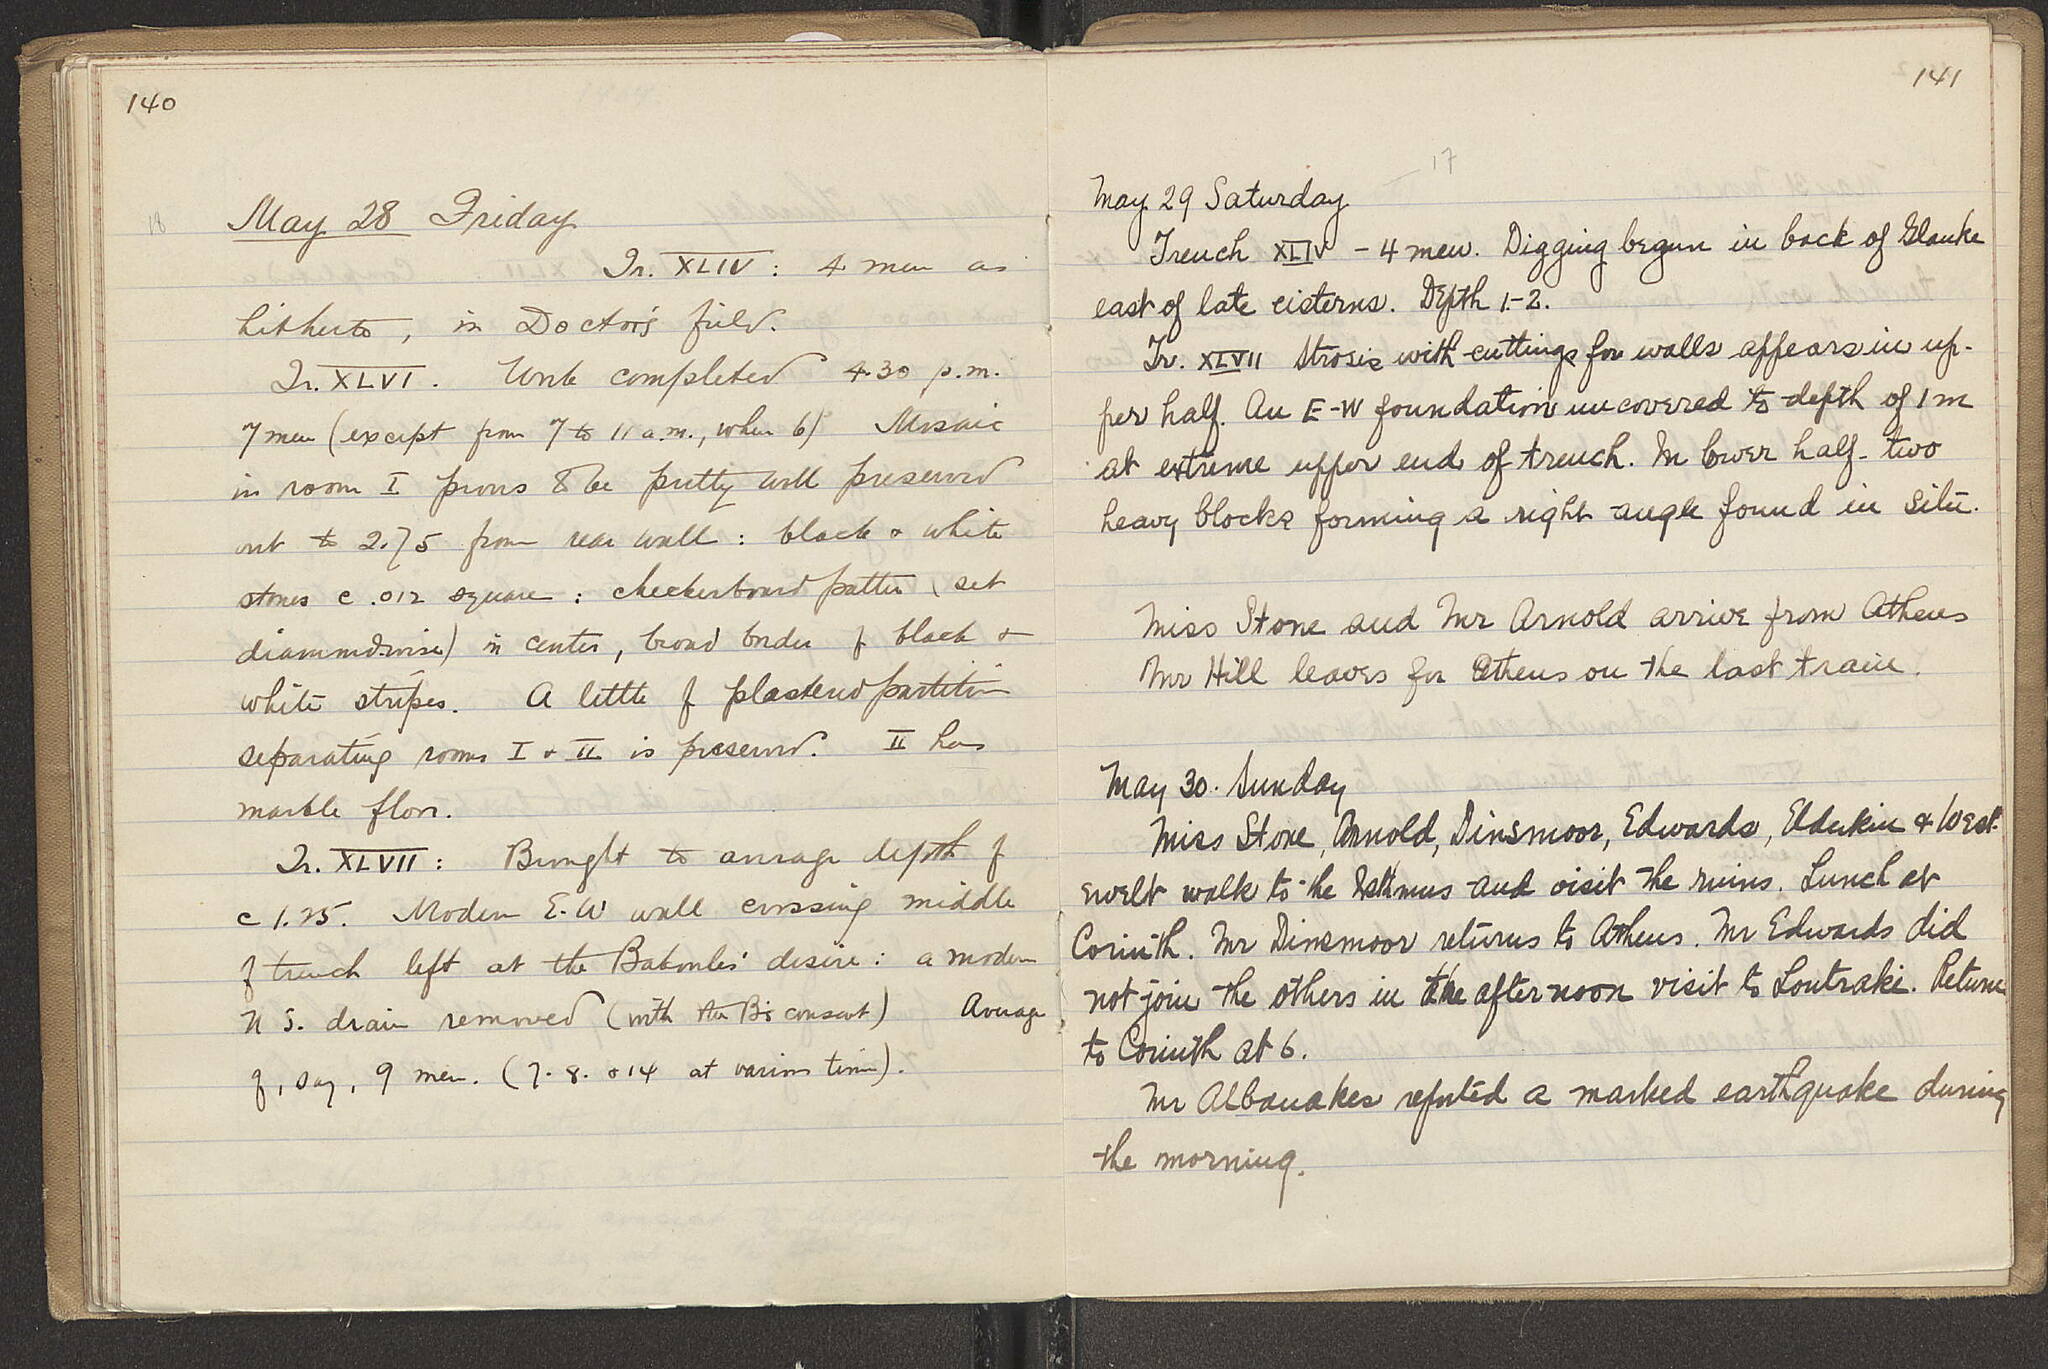 140
18
May 28 Friday
Tr. XLIV : 4 men as
hitherto, in Doctor's field.
Tr. XLVI. Work completed 4.30 p.m.
7 men (except from 7 to 11 a.m., when 6) Mosaic
in room I proves to be pretty well preserved
out to 2.75 from rear wall : black & white
stones c .012 square : checkerboard pattern (set
diamond-wise) in center, broad border of black &
white stripes. A little of plastered partition
separating rooms I & II is preserved. II has
marble floor.
Tr. XLVII : Brought to average depth of
c 1.25. Modern E-W wall crossing middle
of trench left at the Bakoules' desire : a modern
N S. drain removed (with the B's consent) Average
of, say, 9 men. (7. 8. & 14 at various times).
141
17
May 29 Saturday
Trench XLIV - 4 men. Digging begun in back of Glauke
east of late cisterns. Depth 1.-2.
Tr. XLVII Strosis with cuttings for walls appears in up-
per half. An E-W foundation uncovered to depth of 1 m
at extreme upper end of trench. In lower half- two
heavy blocks forming a right angle found in situ.
Miss Stone and Mr Arnold arrive from Athens
Mr Hill leaves for Athens on the last train.
May 30. Sunday
Miss Stone, Arnold, Dinsmoor, Edwards, Elderkin & West-
ervelt walk to the Isthmus and visit the ruins. Lunch at
Corinth. Mr Dinsmoor returns to Athens. Mr Edwards did
not join the others in the afternoon visit to Loutraki. Return
to Corinth at 6.
Mr Albanakes reported a marked earthquake during
the morning.